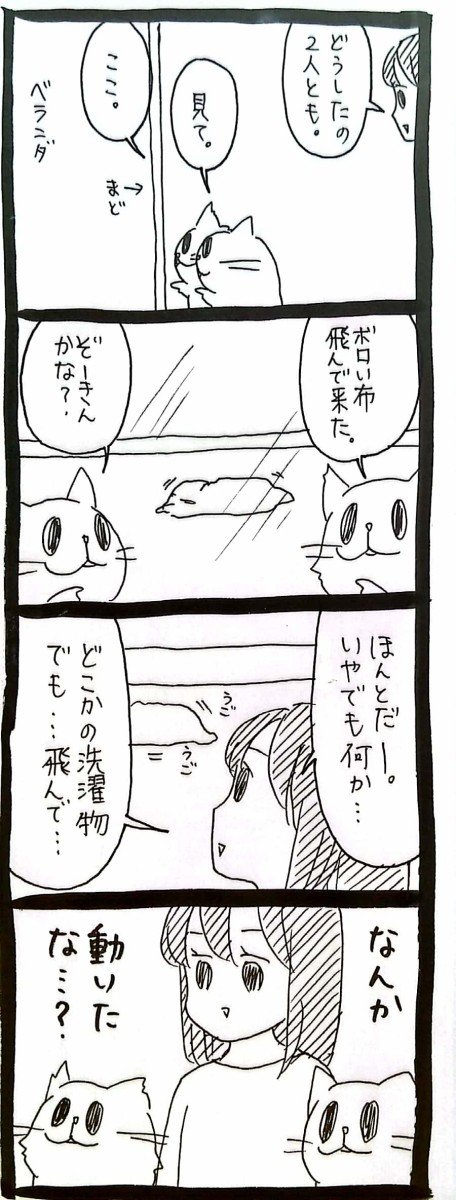 どうしたの
2人とも。
見て。
ここ。
まど→
ベランダ
ボロい布
飛んで来た。
ぞーきん
かな?
ほんとだー。
いやでも何か…
うご
うご
どこかの洗濯物
でも…飛んで…
なんか
動いた
な…?